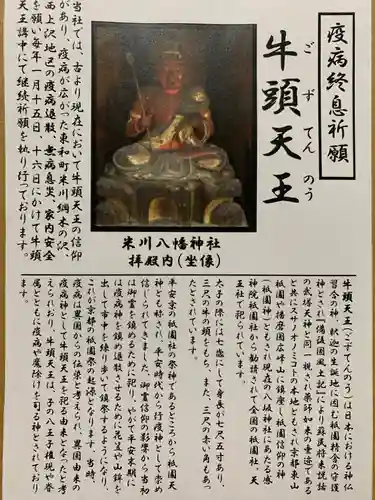 疫病終息祈願
牛頭天王
ごずてんのう
米川八幡神社
拝殿内(坐像)
当社では、古より現在において牛頭天王の信仰
があり、疫病が広がった東和町米川綱木の沢、
西上沢地区の疫病退散、無病息災、家内安全
を願い毎年一月十五日、十六日にかけて牛頭
天王講中にて継続祈願を執り行っております。
牛頭天王(ごずてんのう)は日本における神仏
習合の神。釈迦の生誕地に因む祇園精舎の守護
神とされ「備後国風土記」により蘇民将来説話
の武塔天神と同一視され薬師如来の垂迹である
と共に、スサノオノミコトの本地ともされ、京都東山
祇園や播磨国広峰山に鎮座した祇園信仰の神
(祇園神)ともされ現在の八坂神社にあたる感
神院祇園社から勧請されて全国の祇園社、天
王社で祀られています。
太子の際には七歳にして身長が七尺五寸あり、
三尺の牛の頭をもち、また、三尺の赤い角もあっ
たとされています。
平安京の祇園社の祭神であるところから祇園天
神とも称され、平安時代から行疫神として崇め
信じられてきました。御霊信仰の影響から当初
は御霊を鎮めるために祀り、やがて平安末期に
は疫病神を鎮め退散させるために花笠や山鉾を
出して市中を練り歩いて鎮祭するようになり、
これが京都の祇園祭の起源となります。当時、
疫病は異国からの伝染と考えられ、異国由来の
疫病神として牛頭天王を祀る由来となったと考
えられおり、牛頭天王は、子の八王子権現や眷
属とともに疫病や魔除けを司る神とされており
ます。